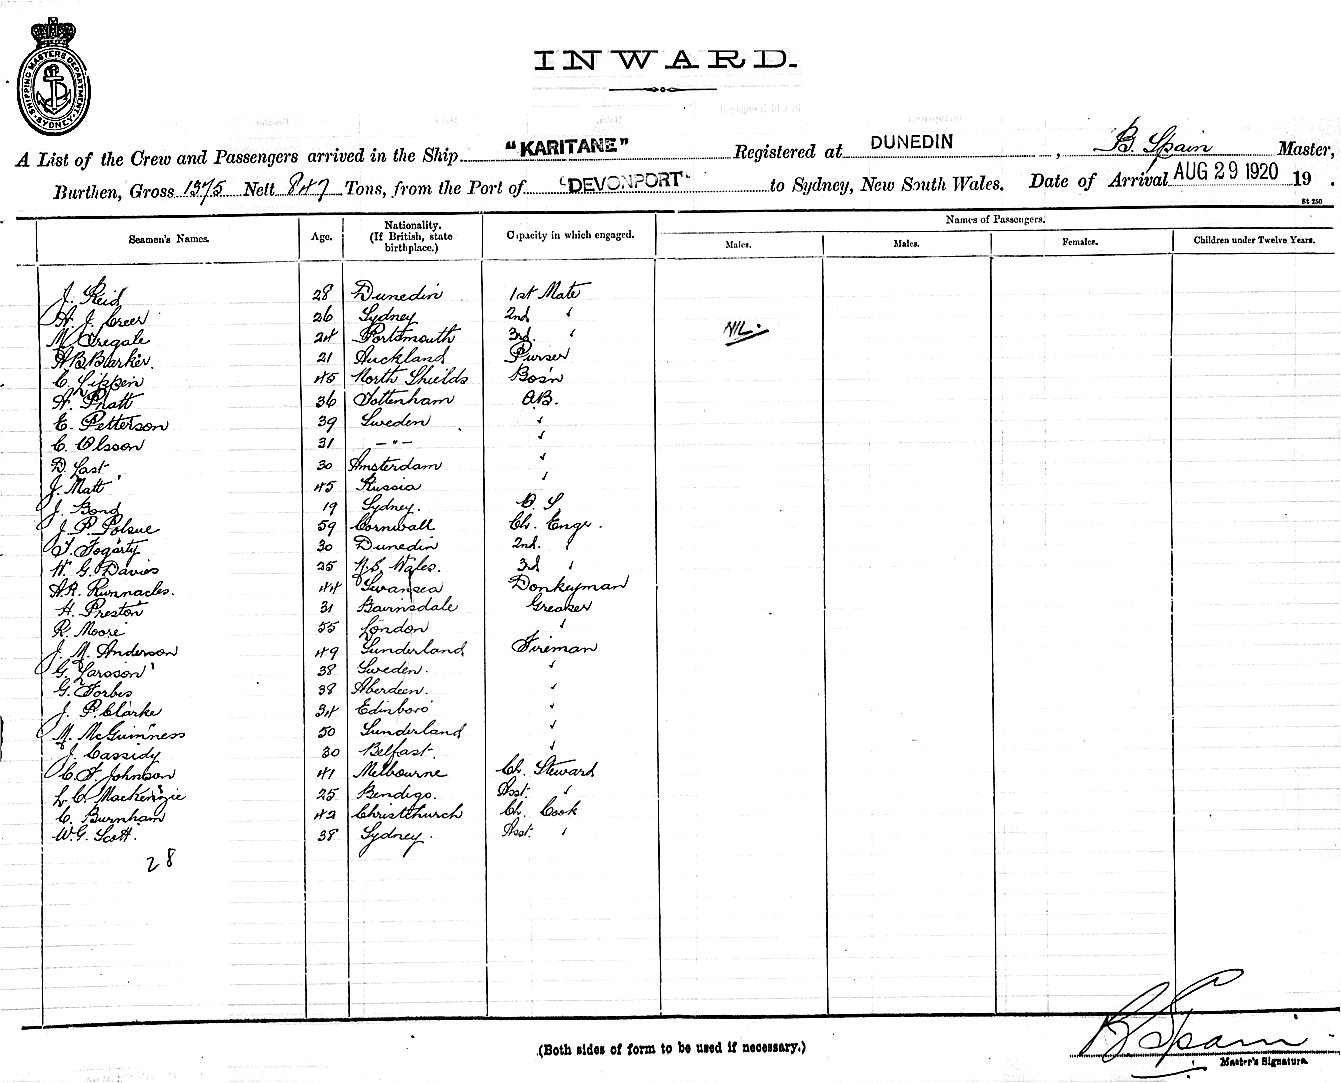 SHIPPING MASTERS DEPARTMENT SYDNEY
INWARD.
A List of the Crew and Passengers arrived in the Ship "KARITANE" Registered at DUNEDIN, B. Spain Master,
Burthen, Gross 1375 Nett 847 Tons, from the Port of "DEVONPORT" to Sydney, New South Wales. Date of Arrival AUG 29 1920 19 .
St 250
Seamen's Names. Age. Nationality. (If British, state birthplace.) Capacity in which engaged. Names of Passengers.
Males. Males. Females. Children under Twelve Years.
J. Reid 28 Dunedin 1st Mate
A. J. Creer 26 Sydney 2nd "
M. Tregale 24 Portsmouth 3rd. "
NIL.
A B Barker. 21 Auckland Purser
C. Lippen 45 North Shields Bosn
A. Pratt 36 Tottenham A.B.
E. Petterson 39 Sweden "
C. Olsson 31 — " — "
D. Last 30 Amsterdam "
J. Matt 45 Russia "
J. Bond 19 Sydney. O. S
J. P. Polsue 59 Cornwall Ch. Engr.
T. Fogarty 30 Dunedin 2nd. "
W. G. Davies 25 N.S. Wales. 3rd "
A.R. Runnacles. 44 Swansea Donkeyman
H. Preston 31 Bairnsdale Greaser
R. Moore 55 London "
J. M. Anderson 49 Sunderland Fireman
G. Larsson 38 Sweden. "
G. Forbes 38 Aberdeen. "
J. P. Clarke 34 Edinboro "
M. McGuinness 50 Sunderland "
J. Cassidy 30 Belfast. "
C. F. Johnson 41 Melbourne Ch. Steward
L. C. Mackenzie 25 Bendigo. Asst. "
C. Burnham 42 Christchurch Ch. Cook
W. G. Scott. 38 Sydney. Asst. "
28
B Spain
(Both sides of form to be used if necessary.)
Master's Signature.